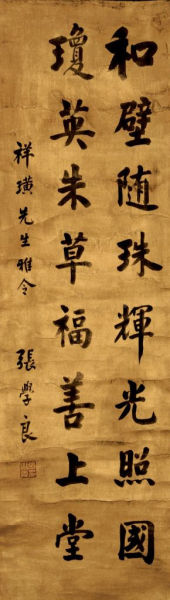 和壁随珠輝光照國
瓊英朱草福善上堂
祥璜先生雅令
張學良